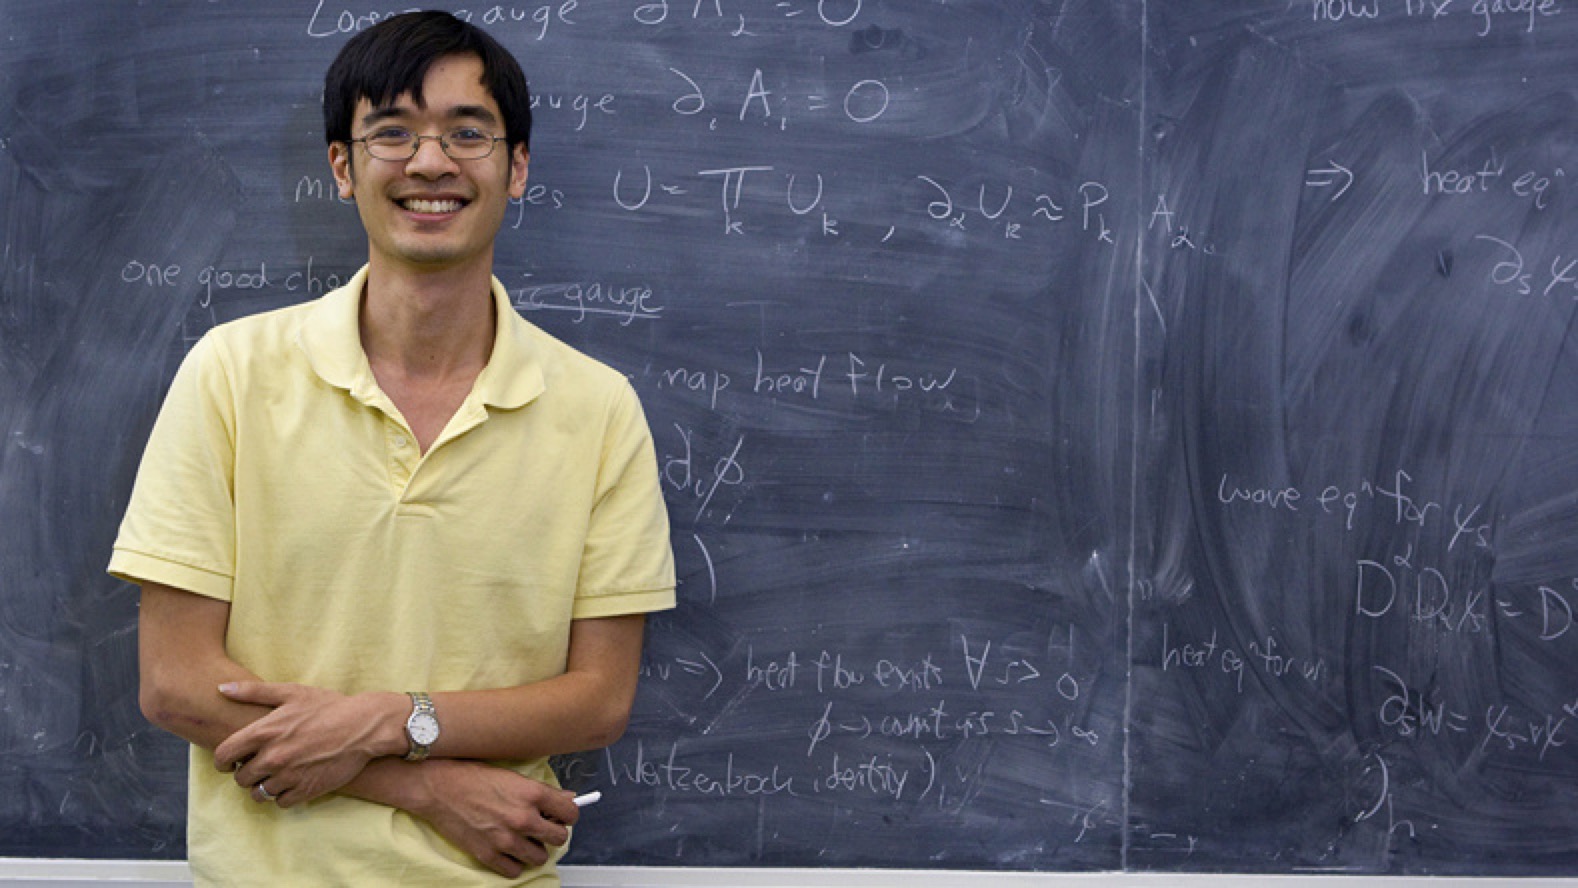 Lorenz gauge ∂ A = 0
auge ∂ᵢ Aᵢ = 0
U = ∏ₖ Uₖ , ∂α Uₖ ≈ Pₖ Aα
one good
ic gauge
map heat flow
∂ᵢϕ
)
⇒ heat flow exists ∀ s > 0
ϕ → const as s → ∞
Weitzenbock identity)
now fix gauge
⇒ heat eqⁿ
∂ₛ ψₛ
wave eqⁿ for ψₛ
heat eqⁿ for w
∂ₛw =